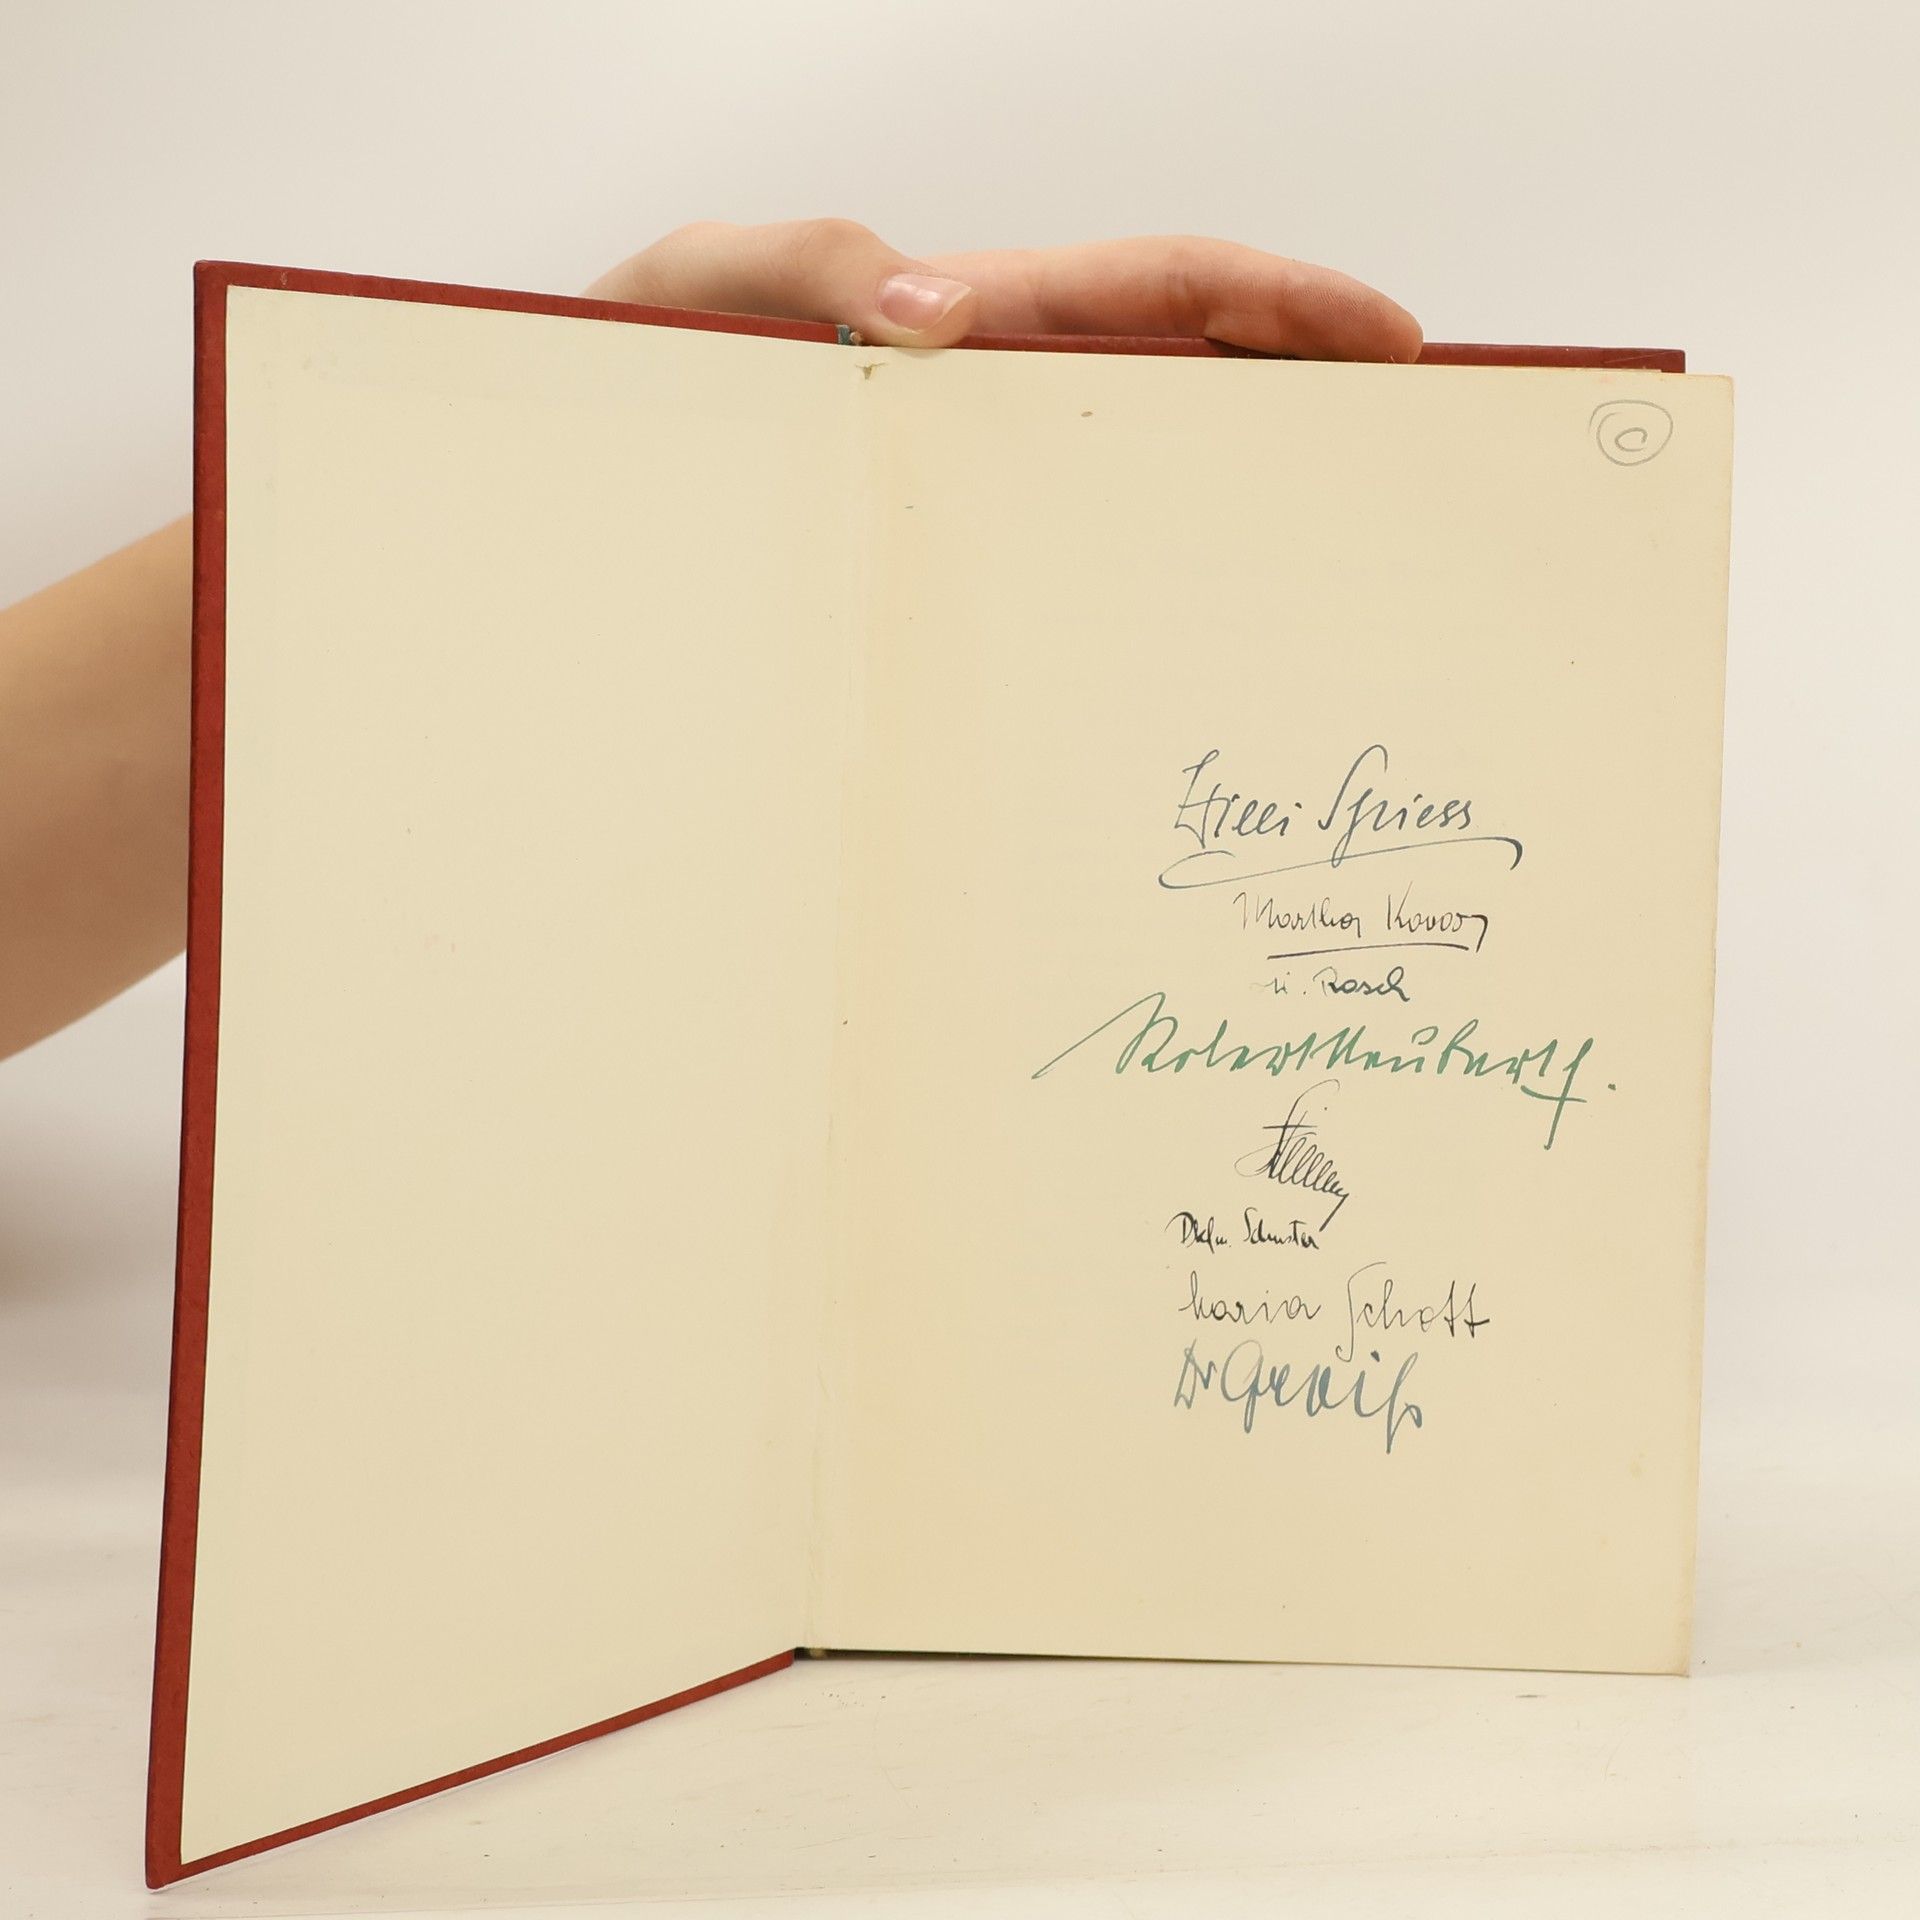 C
Willi Spiess
Martha Kovacs
Rasch
Robert Neuberth.
Dkfm. Schuster
Maria Schott
Dr Greiß